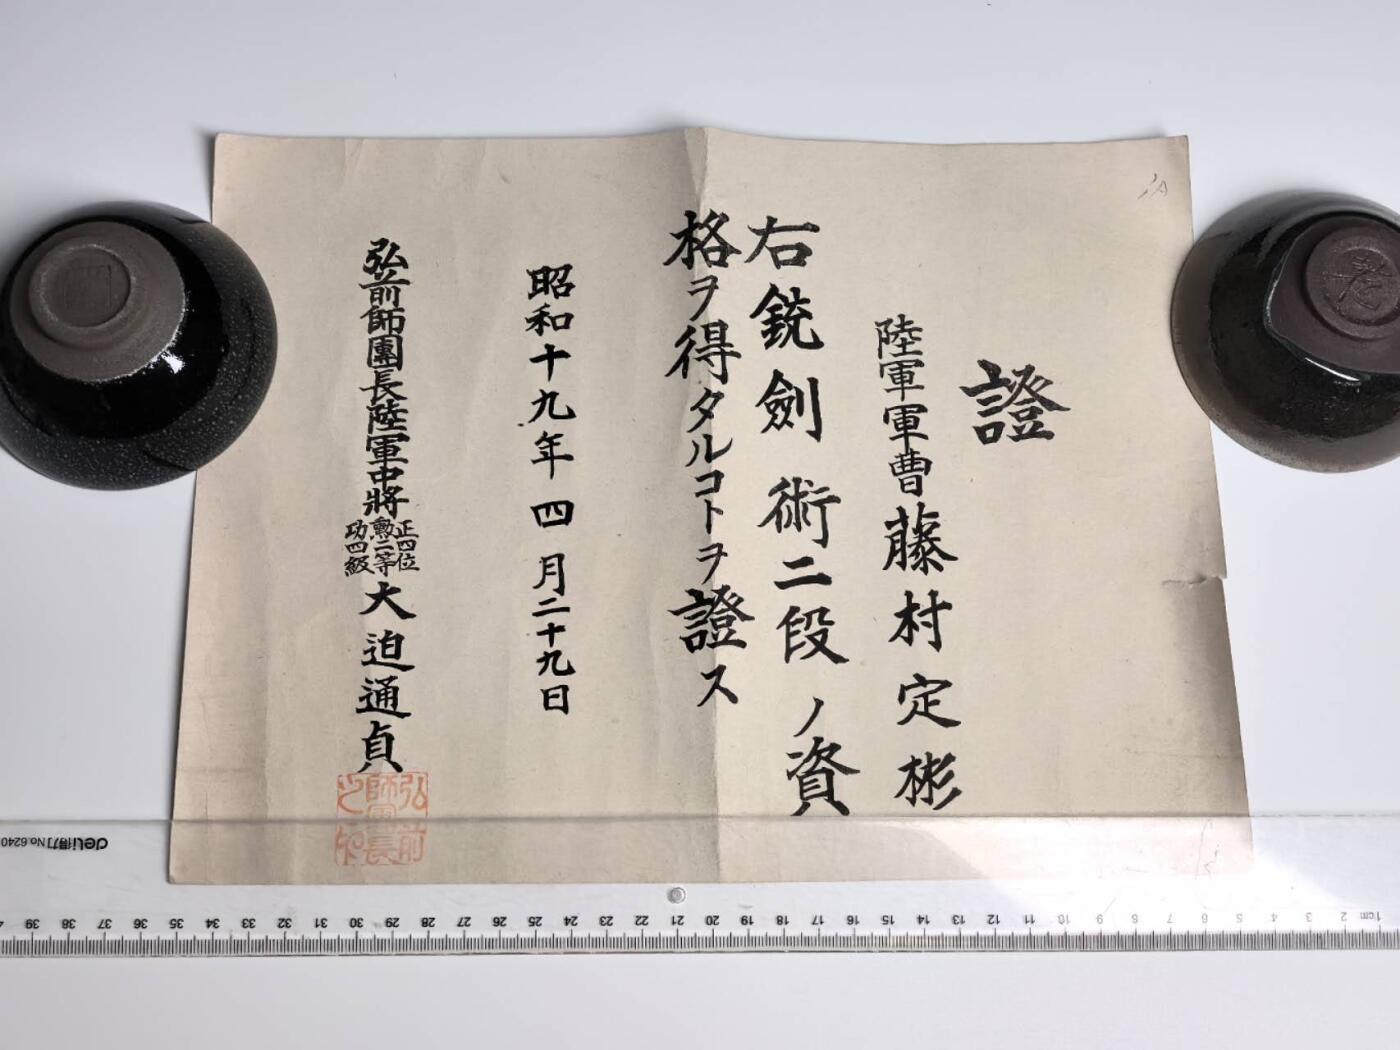 證
陸軍軍曹藤村定彬
右銃劍術二段ノ資
格ヲ得タルコトヲ證ス
昭和十九年四月二十九日
弘前師團長陸軍中將正四位勳二等功四級大迫通貞
弘前師團長之印
deli得力No.6240
1cm 2 3 4 5 6 7 8 9 10 11 12 13 14 15 16 17 18 19 20 21 22 23 24 25 26 27 28 29 30 31 32 33 34 35 36 37 38 39